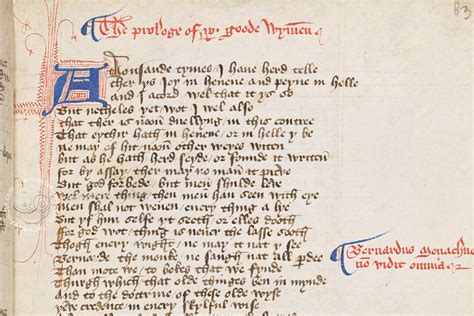 The prologe of .ix. goode Wymmen
83
A Thousande tymes I haue herd telle
ther ys Ioy in heuene and peyne in helle
And I acord wel that it ys so
But netheles yet wot I wel also
That ther is noon duellyng in this contree
That eythir hath in heuene or in helle y be
ne may of hit noon other weyes witen
but as he hath herd seyde or founde it writen
for by assay ther may no man it preve
But god forbede but men shulde leve
Wel more thing then men han seen with eye
men shal not wenen euery thing a lye
But yf him selfe yt seeth or elles dooth
For god wot thing is neuer the lasse sooth
Thogh euery wight ne may it nat y see
Bernarde the monke ne saugh nat all parde
Than mote we to bokes that we fynde
Thurgh which that olde thinges ben in mynde
And to the doctrine of these olde wyse
yeve credence in euery skylful wise
Bernardus monachus
non vidit omnia